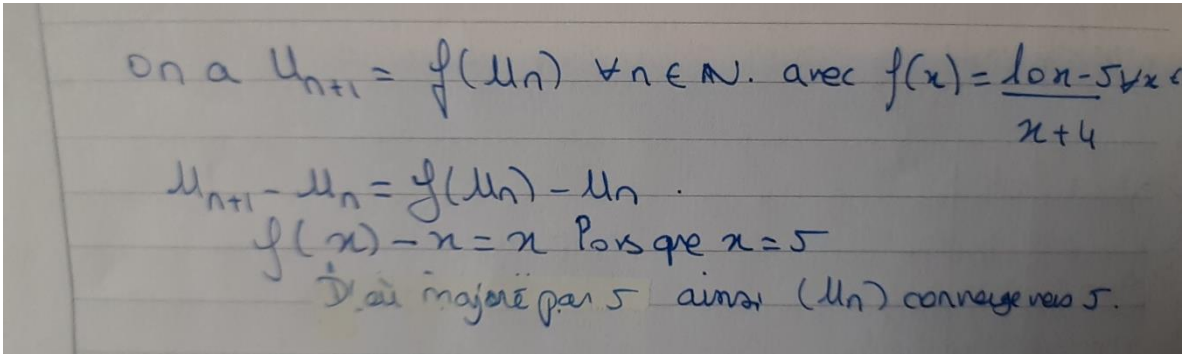 on a Un+1 = f(Un) ∀n ∈ ℕ. avec f(x) = (10x-5)/(x+4) ∀x
Un+1 - Un = f(Un) - Un.
f(x) - x = x lorsque x = 5
D'où majoré par 5 ainsi (Un) converge vers 5.